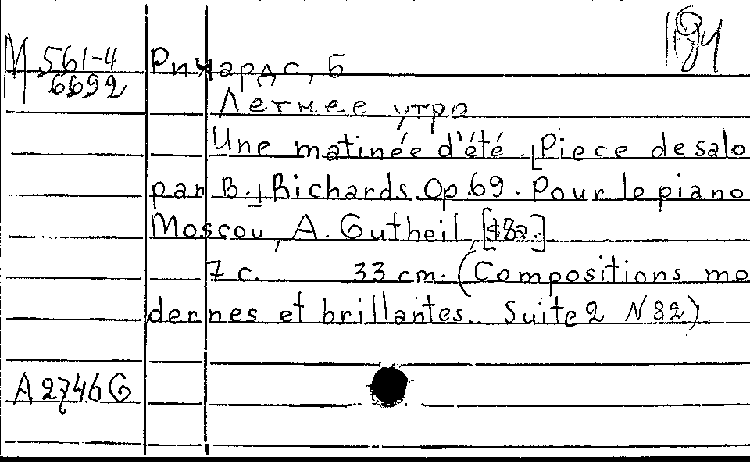 М 561-4
6692
Ричардс, Б
Летнее утро
Une matinée d'été. [Piece de salo
par B.] Richards. Op. 69. Pour le piano
Moscou, A. Gutheil, [187.]
7 с. 33 cm. (Compositions mo
dernes et brillantes. Suite 2 N 32)
А 2746 G